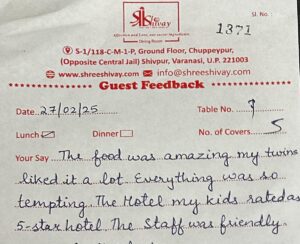 Sl. No.
Shree Shivay
1371
Dining Room
S-1/118-C-M-1-P, Ground Floor, Chuppeypur,
(Opposite Central Jail) Shivpur, Varanasi, U.P. 221003
www.shreeshivay.com info@shreeshivay.com
Guest Feedback
Date 27/02/25 Table No. 9
Lunch Dinner No. of Covers 5
Your Say The food was amazing my twins
liked it a lot. Everything was so
tempting. The Hotel my kids rated as
5-star hotel The Staff was friendly.